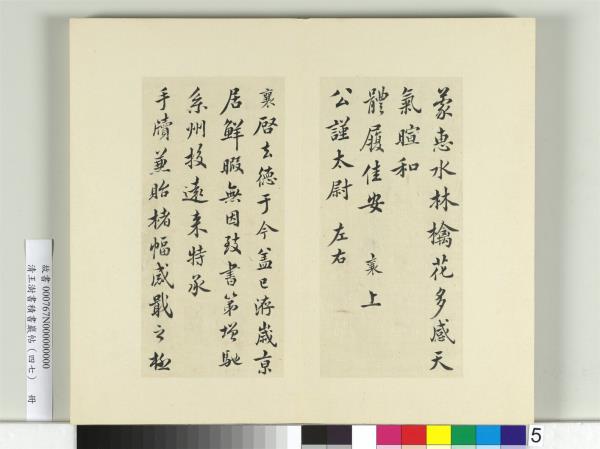 蒙惠水林檎花多感天
氣暄和
體履佳安 襄上
公謹太尉 左右
襄啓去德于今蓋已洊歲京
居鮮暇無因致書第增馳
系州校遠來特承
手牘兼貽楮幅感戢之極
故書000767N000000000
清王澍書積書巖帖(四七) 冊
5